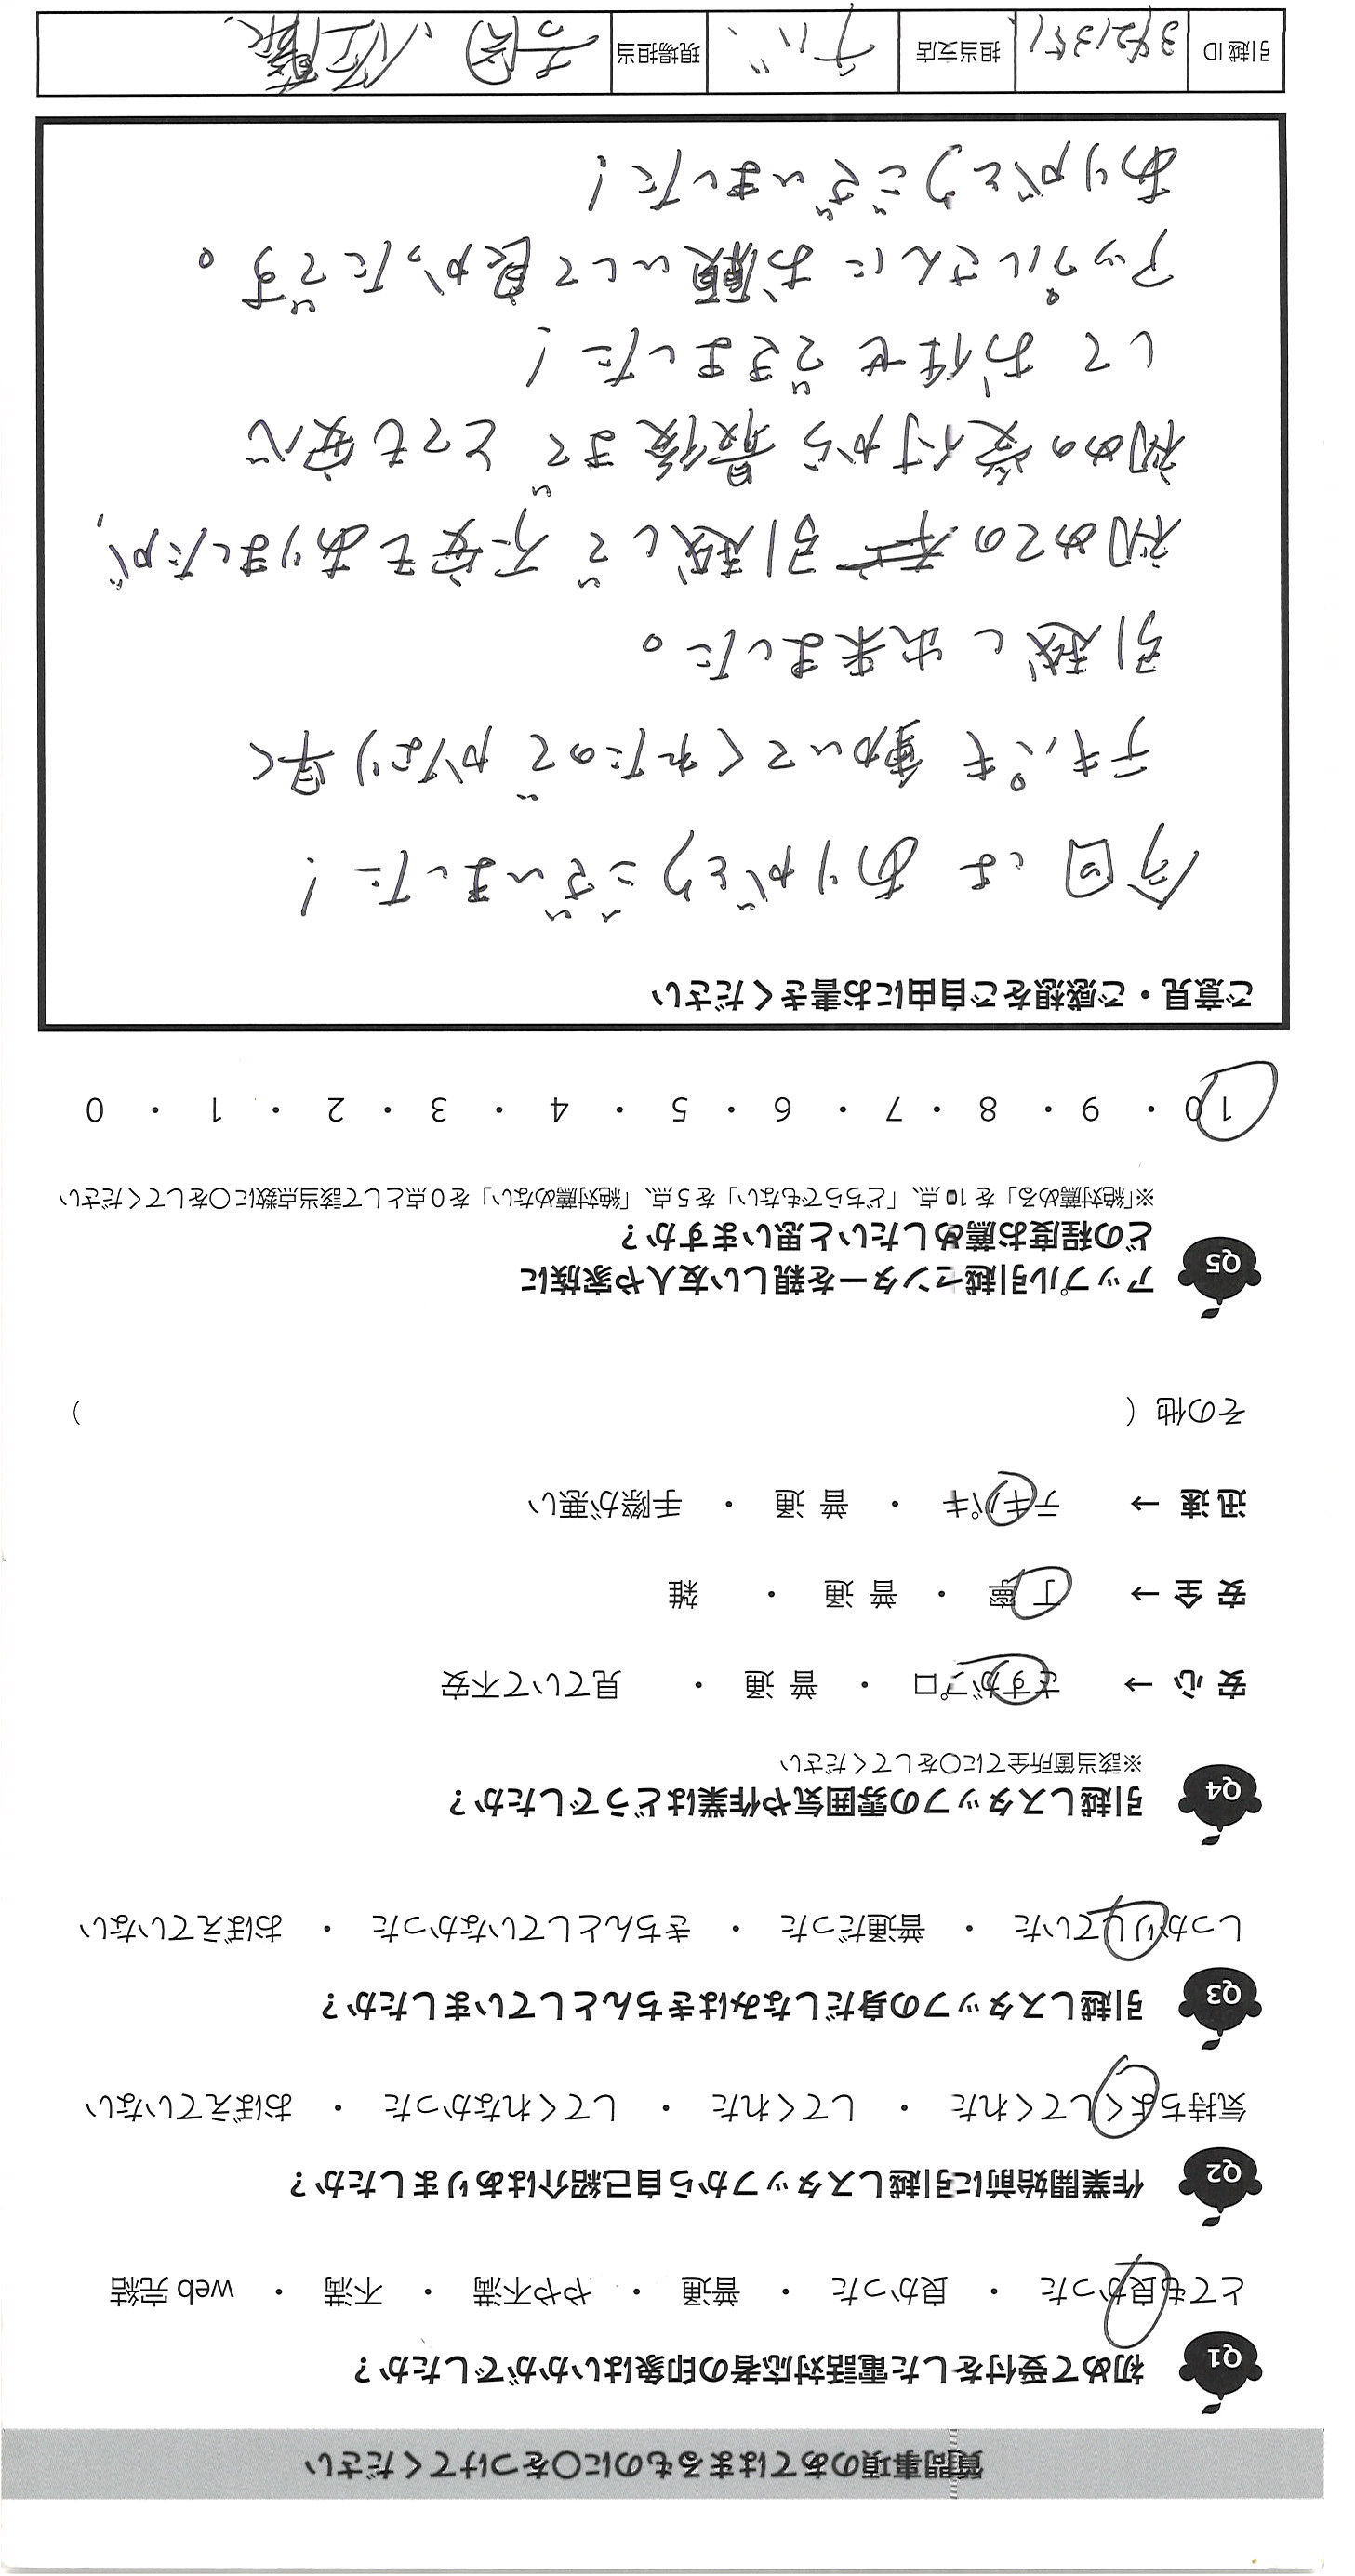 質問事項のあてはまるものに○をつけてください
Q1 初めて受付をした電話対応者の印象はいかがでしたか？
とても良かった ・ 良かった ・ 普通 ・ やや不満 ・ 不満 ・ web 完結
Q2 作業開始前に引越しスタッフから自己紹介はありましたか？
気持ちよくしてくれた ・ してくれた ・ してくれなかった ・ おぼえていない
Q3 引越しスタッフの身だしなみはきちんとしていましたか？
しっかりしていた ・ 普通だった ・ きちんとしていなかった ・ おぼえていない
Q4 引越しスタッフの雰囲気や作業はどうでしたか？
※該当箇所全てに○をしてください
安 心 → さすがプロ ・ 普 通 ・ 見ていて不安
安 全 → 丁 寧 ・ 普 通 ・ 雑
迅 速 → テキパキ ・ 普 通 ・ 手際が悪い
その他 （ ）
Q5 アップル引越センターを親しい友人や家族に
どの程度お薦めしたいと思いますか？
※「絶対薦める」を 10 点、「どちらでもない」を 5 点、「絶対薦めない」を 0 点として該当点数に○をしてください
10 ・ 9 ・ 8 ・ 7 ・ 6 ・ 5 ・ 4 ・ 3 ・ 2 ・ 1 ・ 0
ご意見・ご感想をご自由にお書きください
今回は ありがとうございました！
テキパキ動いてくれたので かなり早く
引越し出来ました。
初めての 引越しで 不安もありましたが、
初めの受付から最後まで とても安心
して お任せできました！
アップルさんにお願いして良かったです。
ありがとうございました！
引越 ID 担当支店 チバ 現場担当